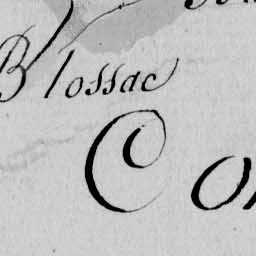 Blossac
Co